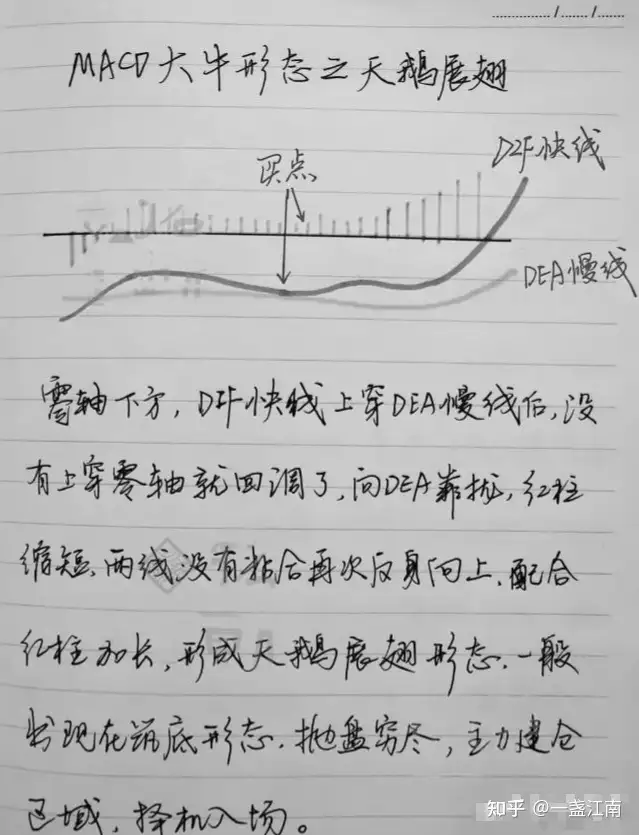 MACD大牛形态之天鹅展翅
买点
DIF快线
DEA慢线
零轴下方,DIF快线上穿DEA慢线后,没
有上穿零轴就回调了,向DEA靠拢,红柱
缩短、两线没有粘合再次反身向上,配合
红柱加长,形成天鹅展翅形态.一般
出现在筑底形态.抛盘穷尽,主力建仓
区域,择机入场。
知乎 @一盏江南